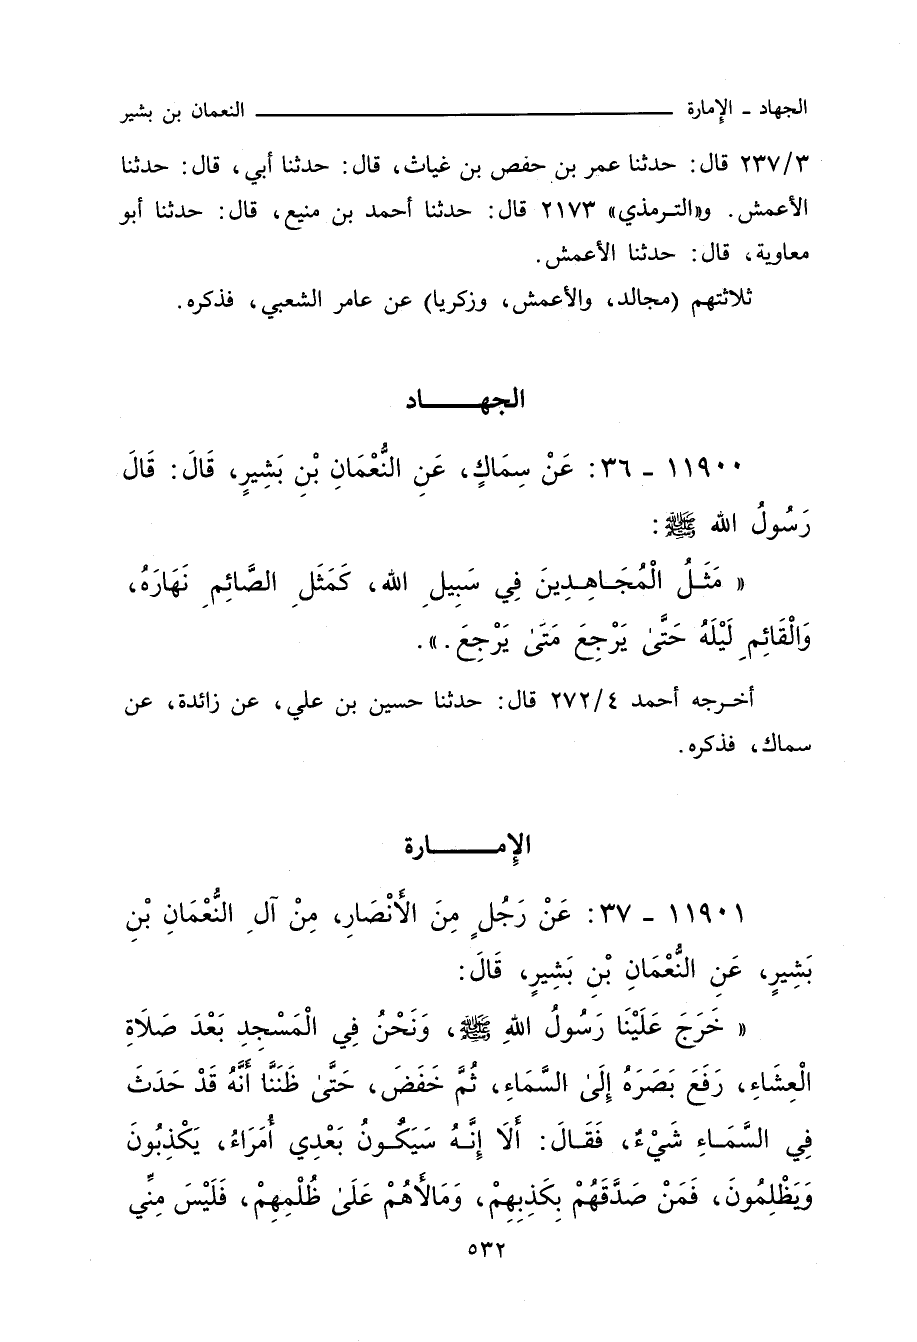 الجهاد ـ الإمارة ـــــــــــــ النعمان بن بشير
٢٣٧/٣ قال: حدثنا عمر بن حفص بن غياث، قال: حدثنا أبي، قال: حدثنا
الأعمش. و«الترمذي» ٢١٧٣ قال: حدثنا أحمد بن منيع، قال: حدثنا أبو
معاوية، قال: حدثنا الأعمش.
ثلاثتهم (مجالد، والأعمش، وزكريا) عن عامر الشعبي، فذكره.
الجهـــــاد
١١٩٠٠ ـ ٣٦: عَنْ سِمَاكٍ، عَنِ النُّعْمَانِ بْنِ بَشِيرٍ، قَالَ: قَالَ
رَسُولُ الله ﷺ:
« مَثَلُ الْمُجَاهِدِينَ فِي سَبِيلِ الله، كَمَثَلِ الصَّائِمِ نَهَارَهُ،
وَالْقَائِمِ لَيْلَهُ حَتَّىٰ يَرْجِعَ مَتَىٰ يَرْجِعَ.».
أخرجه أحمد ٢٧٢/٤ قال: حدثنا حسين بن علي، عن زائدة، عن
سماك، فذكره.
الإمـــــارة
١١٩٠١ ـ ٣٧: عَنْ رَجُلٍ مِنَ الأَنْصَارِ، مِنْ آلِ النُّعْمَانِ بْنِ
بَشِيرٍ، عَنِ النُّعْمَانِ بْنِ بَشِيرٍ، قَالَ:
« خَرَجَ عَلَيْنَا رَسُولُ اللهِ ﷺ، وَنَحْنُ فِي الْمَسْجِدِ بَعْدَ صَلَاةِ
الْعِشَاءِ، رَفَعَ بَصَرَهُ إِلَىٰ السَّمَاءِ، ثُمَّ خَفَضَ، حَتَّىٰ ظَنَنَّا أَنَّهُ قَدْ حَدَثَ
فِي السَّمَاءِ شَيْءٌ، فَقَالَ: أَلَا إِنَّهُ سَيَكُونُ بَعْدِي أُمَرَاءُ، يَكْذِبُونَ
وَيَظْلِمُونَ، فَمَنْ صَدَّقَهُمْ بِكَذِبِهِمْ، وَمَالأَهُمْ عَلَىٰ ظُلْمِهِمْ، فَلَيْسَ مِنِّي
٥٣٢